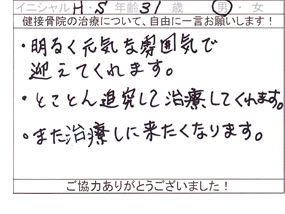 イニシャル H.S 年齢 31 歳・男・女
健接骨院の治療について、自由に一言お願いします!
・明るく元気な雰囲気で
迎えてくれます。
・とことん追究して治療してくれます。
・また治療しに来たくなります。
ご協力ありがとうございました!